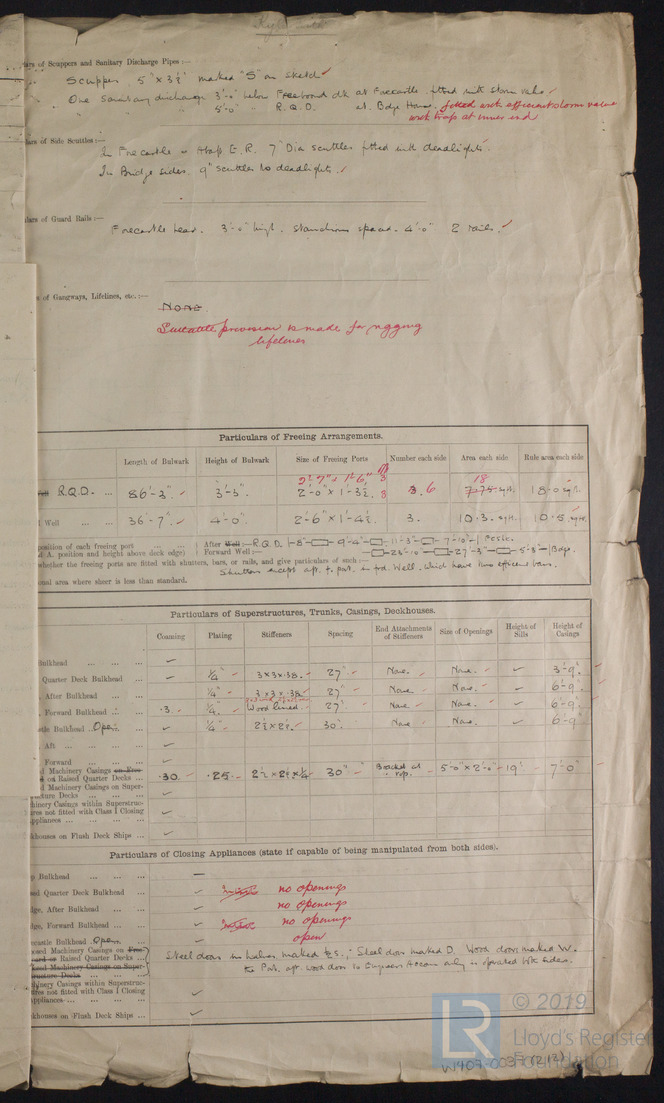 lars of Scuppers and Sanitary Discharge Pipes :—
Scuppers 5" x 3½" marked "S" on sketch
One sanitary discharge 3'-0" below Freeboard dk at Forecastle fitted with storm valve
5'-0" " R.Q.D. at Bdge House, fitted with efficient storm valve
with trap at inner end
lars of Side Scuttles :—
In Forecastle E.R. 7" Dia scuttles fitted with deadlights.
In Bridge sides. 9" scuttles no deadlights.
lars of Guard Rails :—
Forecastle head. 3'-0" high. stanchions spaced. 4'-0" 2 rails.
s of Gangways, Lifelines, etc. :—
None.
Suitable provision is made for rigging
lifelines
Particulars of Freeing Arrangements.
Length of Bulwark Height of Bulwark Size of Freeing Ports Number each side Area each side Rule area each side
R.Q.D. ... 86'-3". 3'-3". 2'-0" x 1'-3½ 3. 6 18 7.75 sq ft. 18.0 sq ft.
Well ... ... 36'-7". 4'-0". 2'-6" x 1'-4½. 3. 10.3. sq ft. 10.5. sq ft.
position of each freeing port ... ... After Well :— R.Q.D. 1-8" 9'-4" 11-3" 7-10" Fcstle.
f A. position and height above deck edge) Forward Well :— 23'-10" 27'-3" 5-3" Bdge.
whether the freeing ports are fitted with shutters, bars, or rails, and give particulars of such :—
Shutters except aft. port. in fwd. Well. which have two efficient bars.
onal area where sheer is less than standard.
Particulars of Superstructures, Trunks, Casings, Deckhouses.
Coaming Plating Stiffeners Spacing End Attachments of Stiffeners Size of Openings Height of Sills Height of Casings
Bulkhead ... ... ...
Quarter Deck Bulkhead ... ¼" 3 x 3 x .38. 27" None. None. 3'-9".
, After Bulkhead ... ¼" 3 x 3 x .38. 27" None. None. 6'-9".
, Forward Bulkhead ... .3. ¼". Wood lined. 27". None. None. 6'-9".
stle Bulkhead Open. ¼" 2½ x 2½. 30". None. None. 6'-9"
, Aft ... ...
, Forward ...
d Machinery Casings on Fore
on Raised Quarter Decks ... .30. .25. 2½ x 2½ x ¼ 30" Bracket at top. 5'-0" x 2'-0" 19" 7'-0"
d Machinery Casings on Super-
structure Decks ... ... ...
hinery Casings within Superstruc-
ures not fitted with Class I Closing
Appliances ... ... ... ...
khouses on Flush Deck Ships ...
Particulars of Closing Appliances (state if capable of being manipulated from both sides).
p Bulkhead ... ... ...
sed Quarter Deck Bulkhead ... no openings
dge, After Bulkhead ... no openings
dge, Forward Bulkhead ... no openings
ecastle Bulkhead Open. open
osed Machinery Casings on Free-
board or Raised Quarter Decks ... Steel doors in halves marked ½S., Steel doors marked D. Wood doors marked W.
osed Machinery Casings on Super-
structure Decks ... ... the Port. aft. wood door to Engineers Accom only is operated both sides.
hinery Casings within Superstruc-
ures not fitted with Class I Closing
Appliances ... ... ... ...
khouses on Flush Deck Ships ...
© 2019
LR Lloyd's Register
Foundation
W407-0037 (2/2)